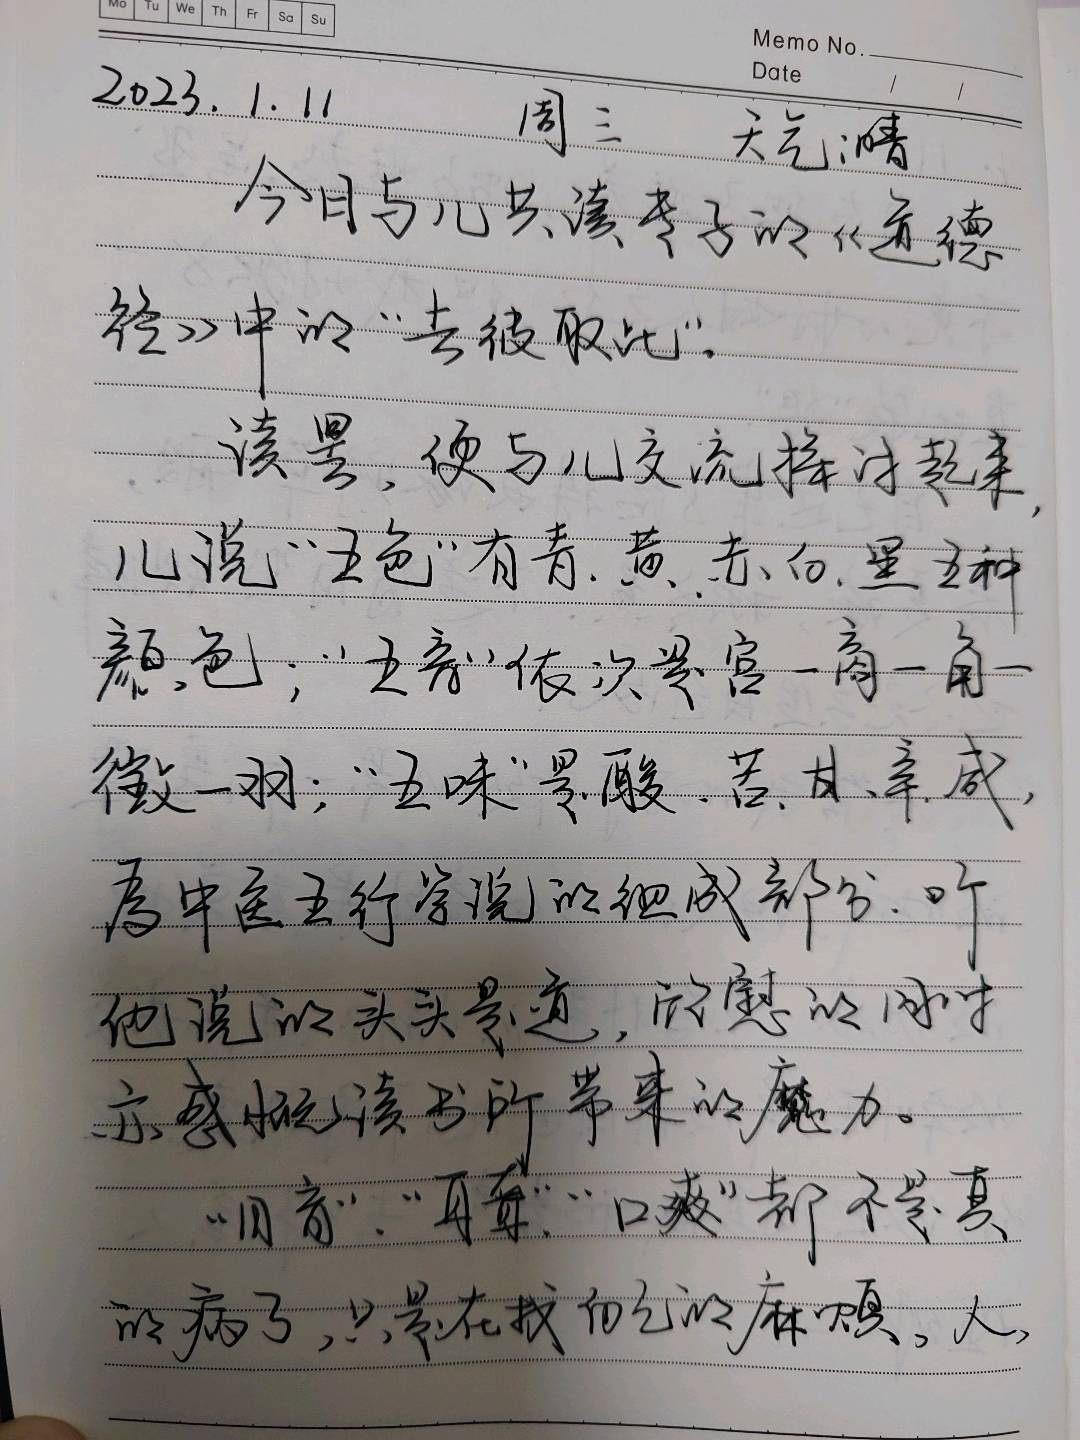 Mo Tu We Th Fr Sa Su
Memo No.
Date / /
2023.1.11 周三 天气:晴
今日与儿共读老子的《道德
经》中的“去彼取此”。
读罢,便与儿交流探讨起来,
儿说“五色”有青、黄、赤、白、黑五种
颜色;“五音”依次是宫一商一角一
徵一羽;“五味”是酸、苦、甘、辛、咸,
为中医五行学说的组成部分.听
他说的头头是道,欣慰的同时
亦感慨读书所带来的魔力。
“目盲”、“耳聋”、“口爽”都不是真
的病了,只是在找自己的麻烦。人